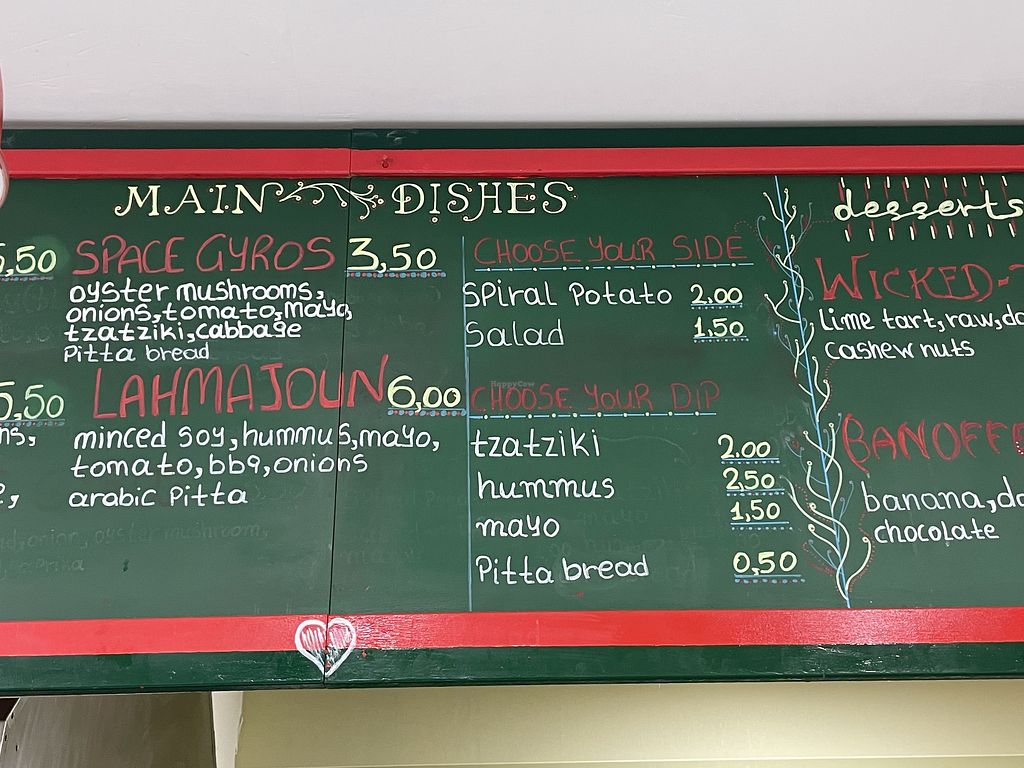 MAIN DISHES
5,50
SPACE GYROS 3,50
oyster mushrooms,
onions, tomato, mayo,
tzatziki, cabbage
Pitta bread
5,50
LAHMAJOUN 6,00
minced soy, hummus, mayo,
tomato, bbq, onions
arabic Pitta
CHOOSE YOUR SIDE
SPiral Potato 2,00
Salad 1,50
CHOOSE YOUR DIP
tzatziki 2,00
hummus 2,50
mayo 1,50
Pitta bread 0,50
desserts
WICKED-
lime tart, raw, da
cashew nuts
BANOFFE
banana, da
chocolate
HappyCow